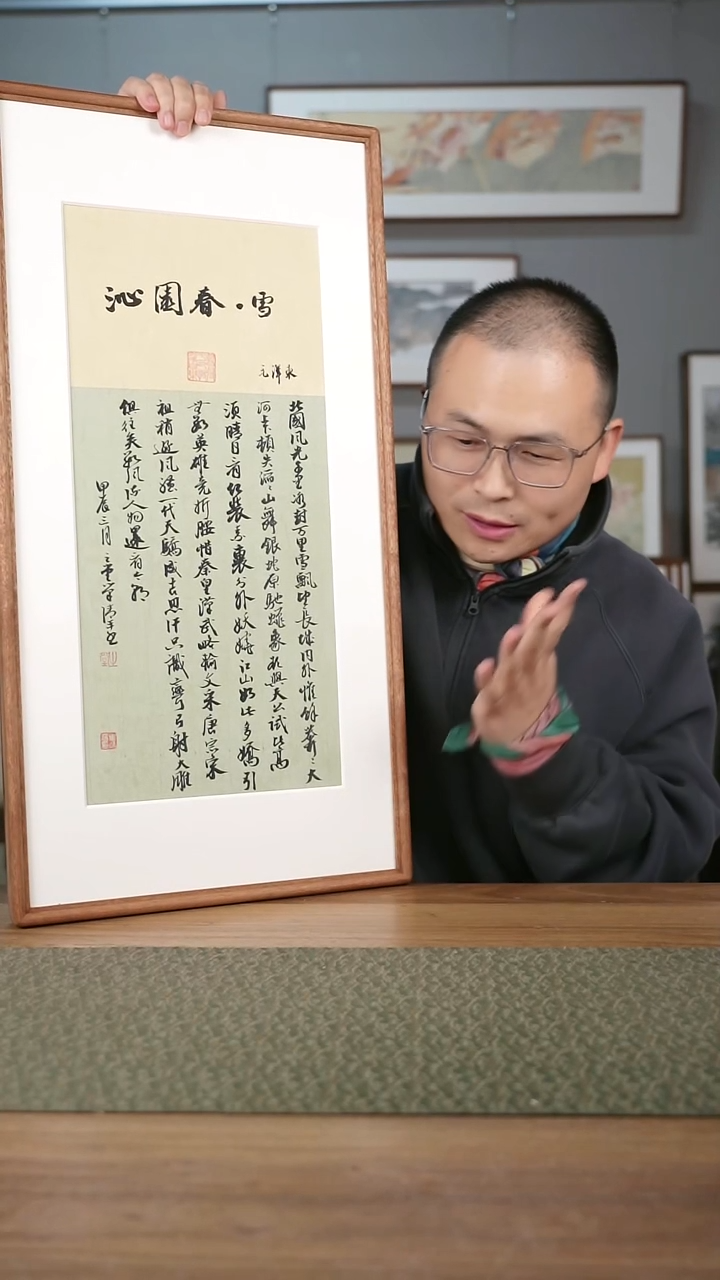 沁園春·雪
毛澤東
北國风光千里冰封万里雪飄望長城内外惟餘莽々大
河上下頓失滔々山舞銀蛇原馳蠟象欲與天公試比高
須晴日看红裝素裹分外妖嬈江山如此多嬌引
無數英雄竞折腰惜秦皇漢武略輸文采唐宗宋
祖稍遜风騷一代天驕成吉思汗只識彎弓射大雕
俱往矣數风流人物還看今朝
甲辰三月